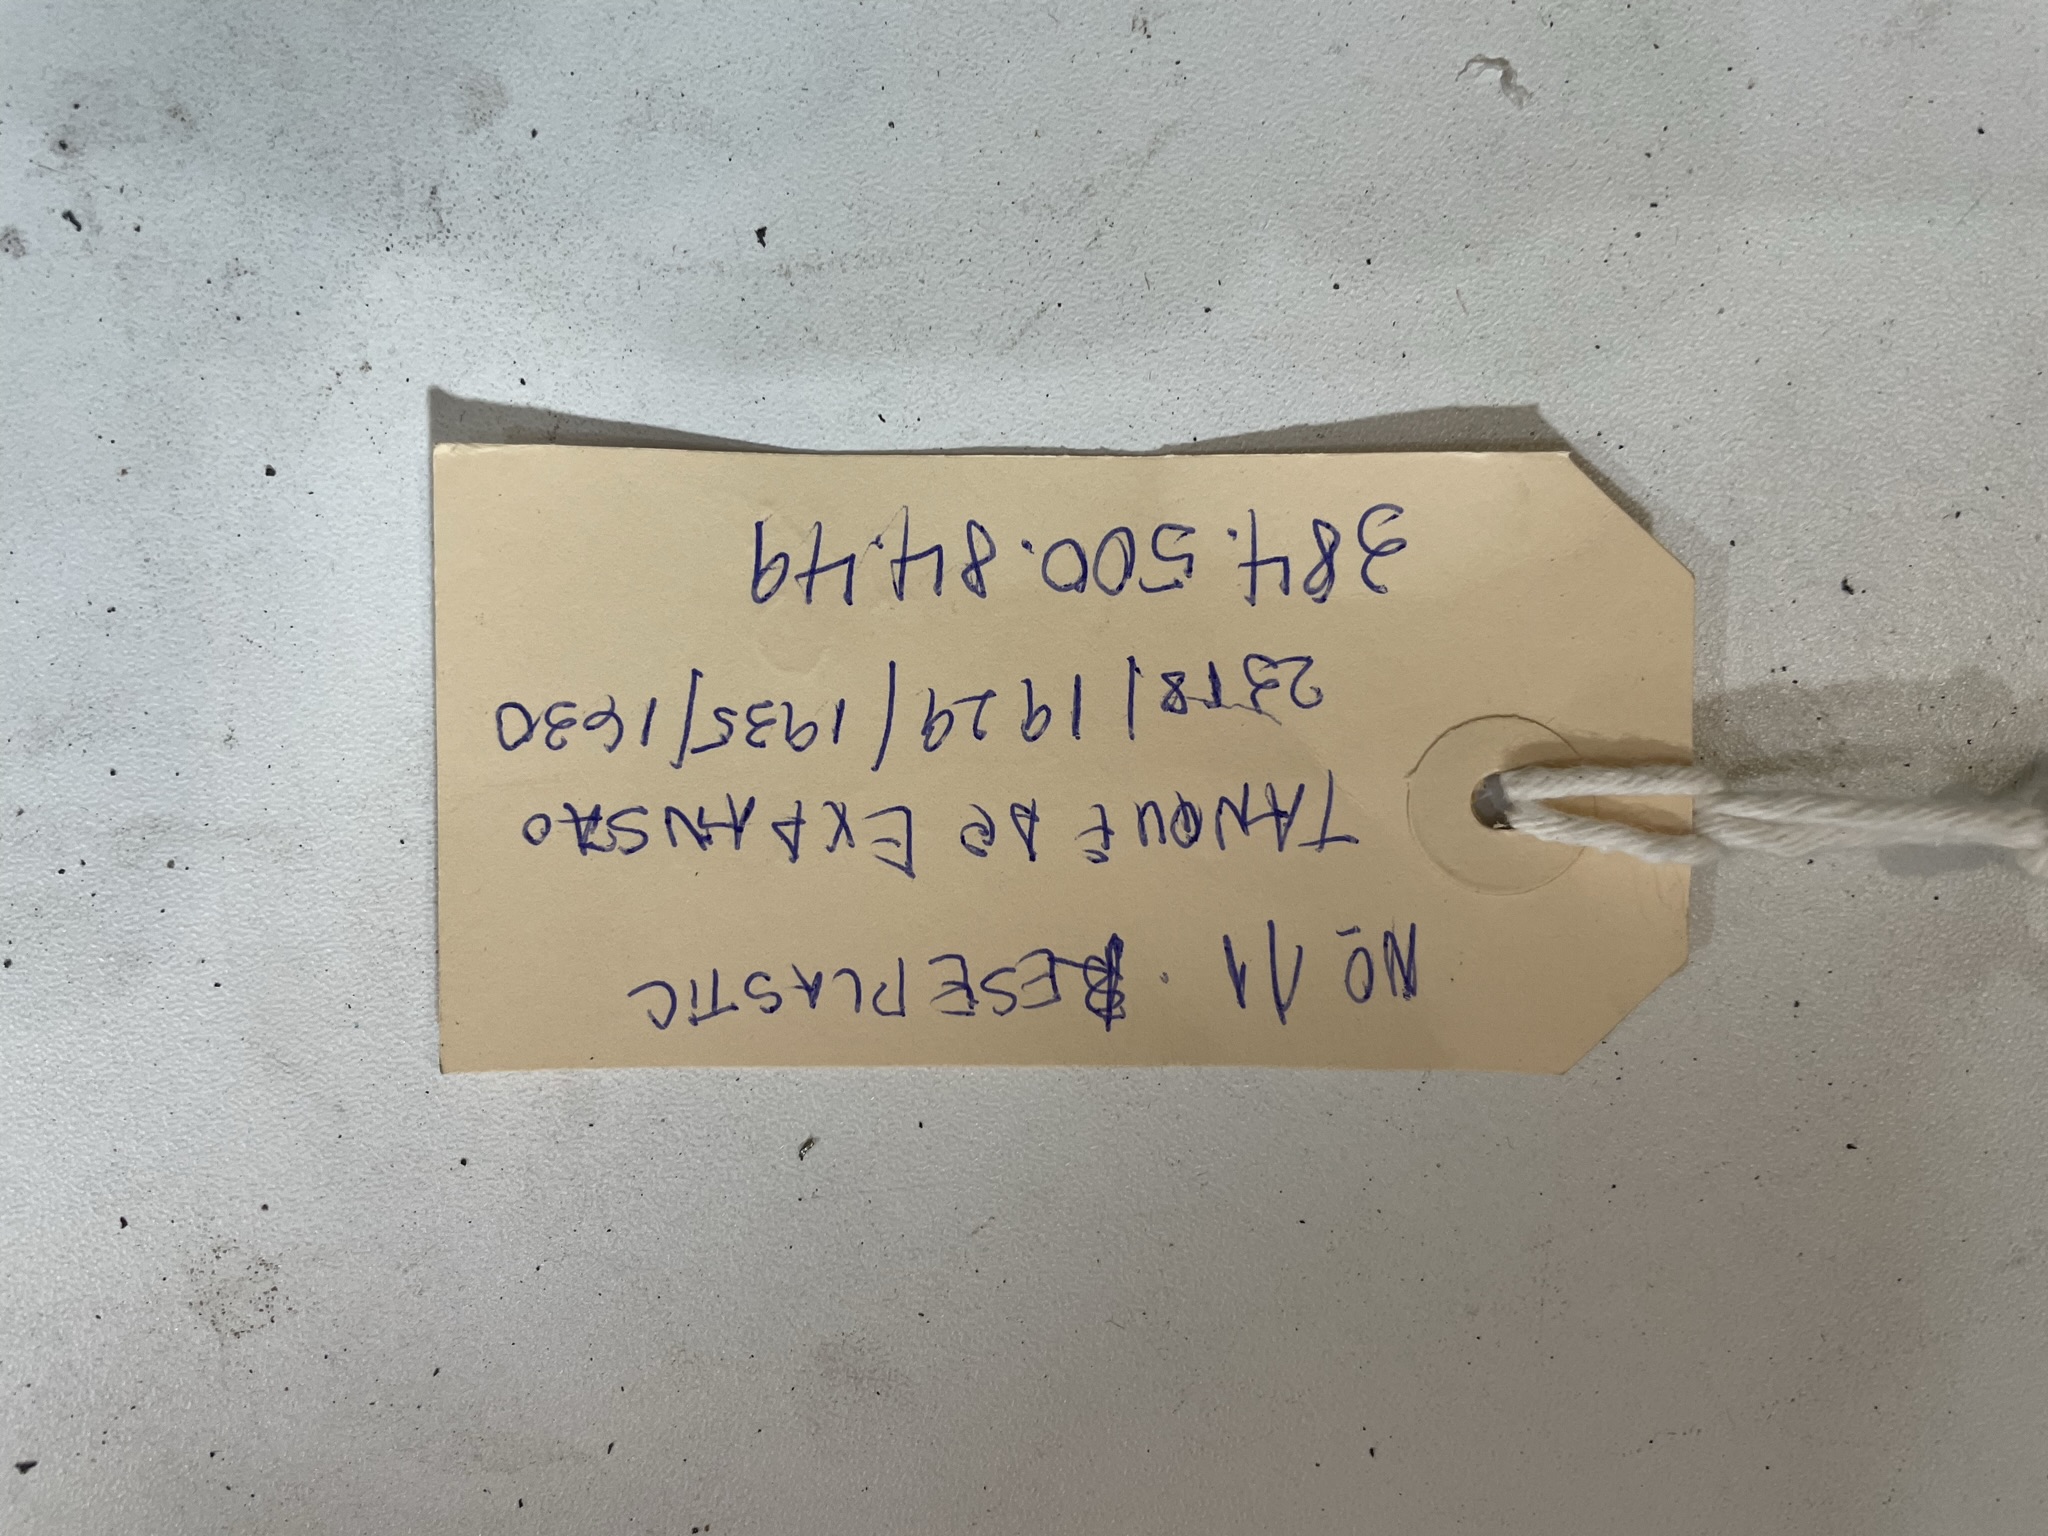 Nº 11. RESEPLASTIC
TANQUE DE EXPANSAO
2318/1929/1935/1630
384.500.84.49